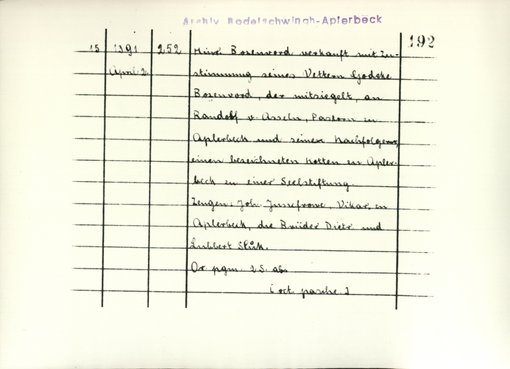 Archiv Bodelschwingh-Aplerbeck
192
15 1391 252 Hinr. Bozenvord verkauft mit Zu-
April 2 stimmung seines Vettern Godeke
Bozenvord, der mitsiegelt, an
Randolf v. Asseln, Pastorn in
Aplerbeck und seinen Nachfolgern,
einen bezeichneten Kotten in Apler-
beck zu einer Seelstiftung.
Zeugen: Joh. Junefrowe, Vikar in
Aplerbeck, die Brüder Dietr. und
Lubbert Suk.
Or. pgm. 2 S. ab.
( oct. pasche. )